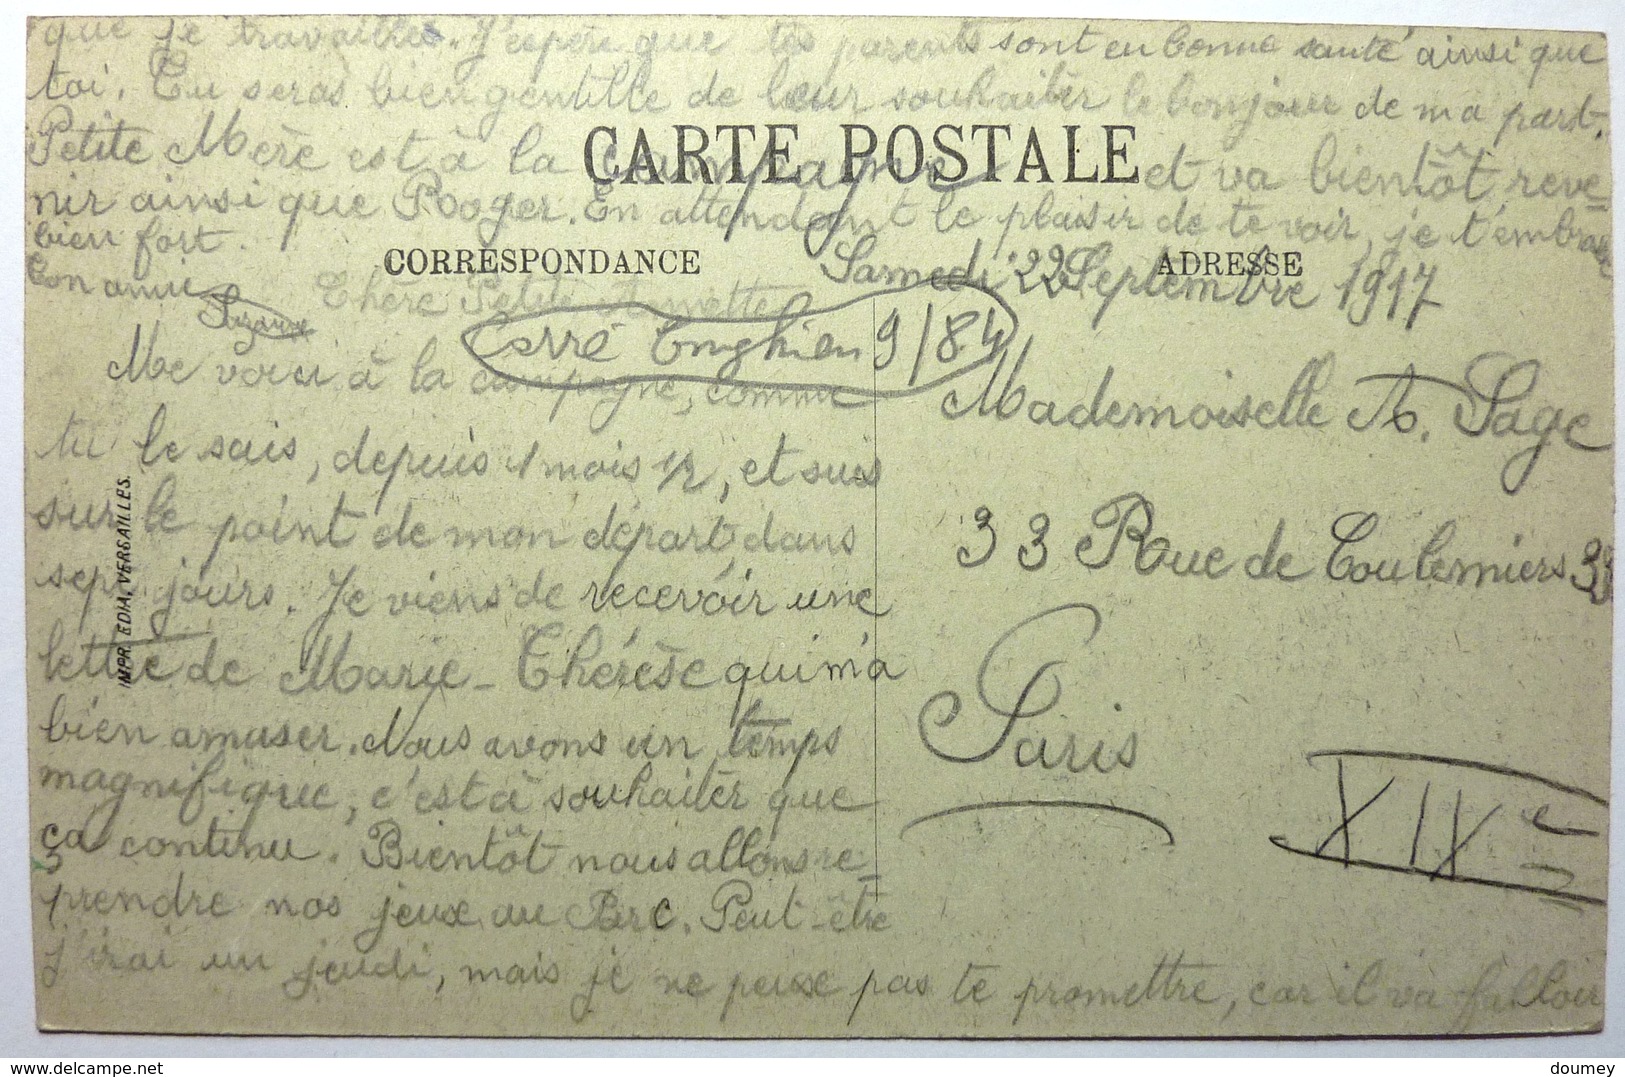 que je travaille. J'espère que tes parents sont en bonne santé ainsi que
toi. Tu seras bien gentille de leur souhaiter le bonjour de ma part.
Petite Mère est à la campagne et va bientôt reve=
nir ainsi que Rooger. En attendant le plaisir de te voir, je t'embrasse
bien fort.
Ton amie
Suzanne
CARTE POSTALE
CORRESPONDANCE
ADRESSE
Samedi 22 Septembre 1917
Chère Petite
Carré Enghien 9/84
Me voici à la campagne, comme
tu le sais, depuis 1 mois 1/2, et suis
sur le point de mon départ, dans
sept jours. Je viens de recevoir une
lettre de Marie-Thérèse qui m'a
bien amuser. Nous avons un temps
magnifique, c'est à souhaiter que
ça continu. Bientôt nous allons re=
prendre nos jeux au Parc. Peut-être
j'irai un jeudi, mais je ne peux pas te promettre, car il va falloir
Mademoiselle A. Sage
33 Rue de Coulemiers 33
Paris
XIVe
IMPR. EDIA. VERSAILLES.
https://www.delcampe.net
doumey